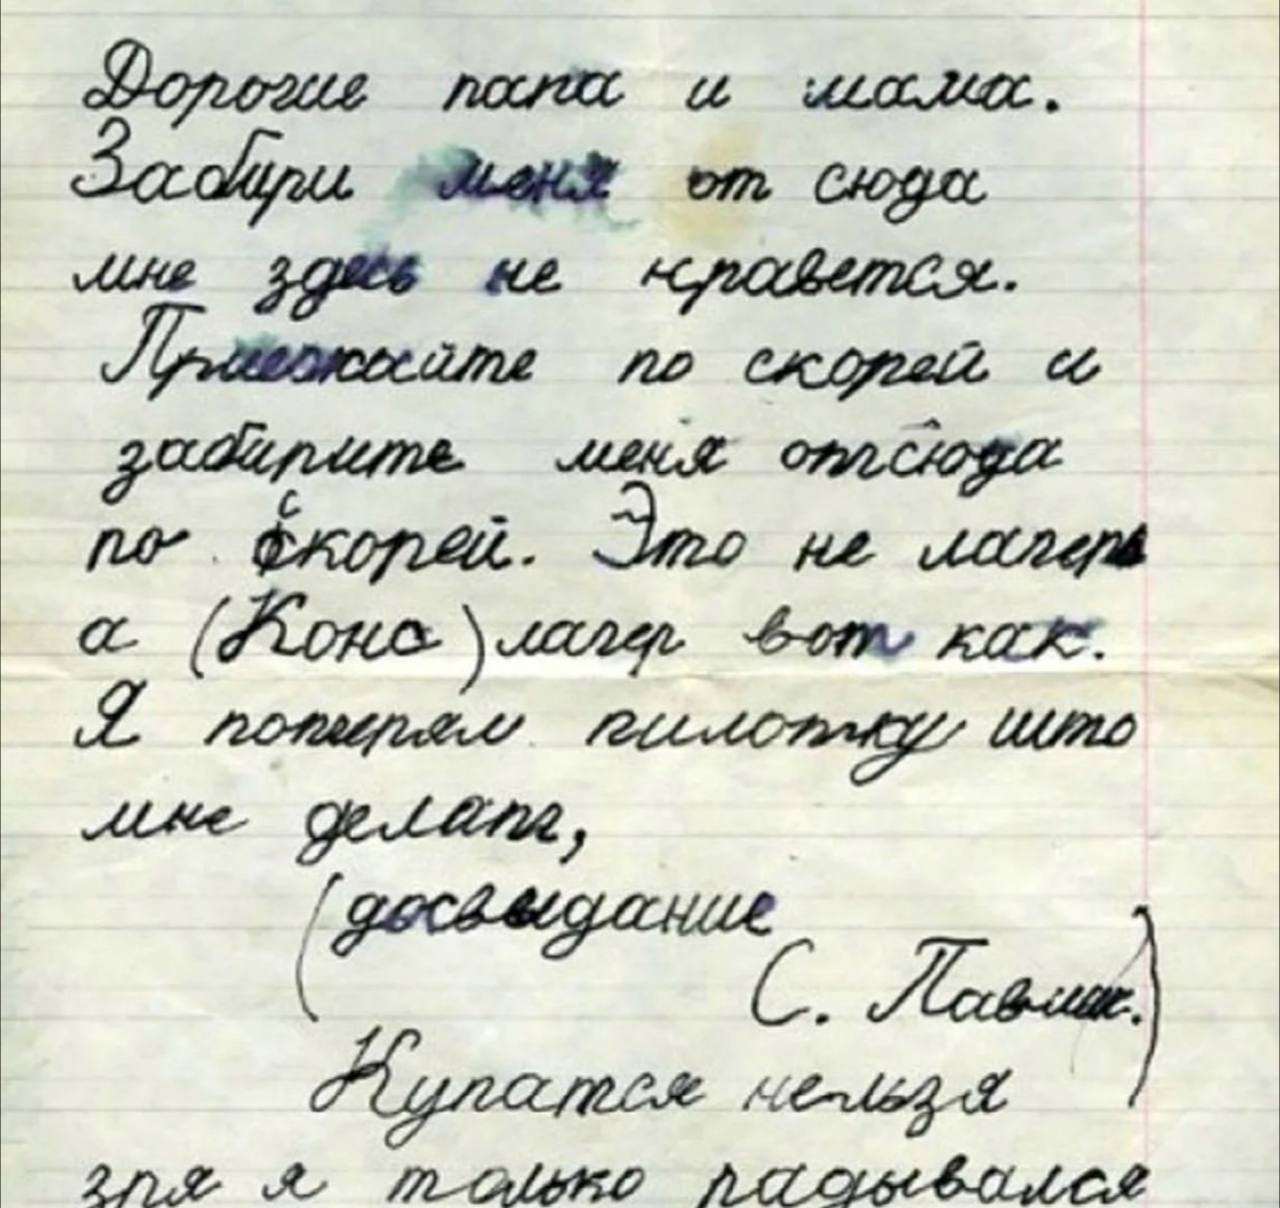 Дорогие папа и мама.
Забири меня от сюда
мне здесь не нравется.
Приезжайте по скорей и
забирите меня отсюда
по скорей. Это не лагерь
а (Конс) лагер вот как.
Я потерял пилотку што
мне делат,
(досвыдание
С. Павлик.)
Купатся нельзя
зря я только радывался